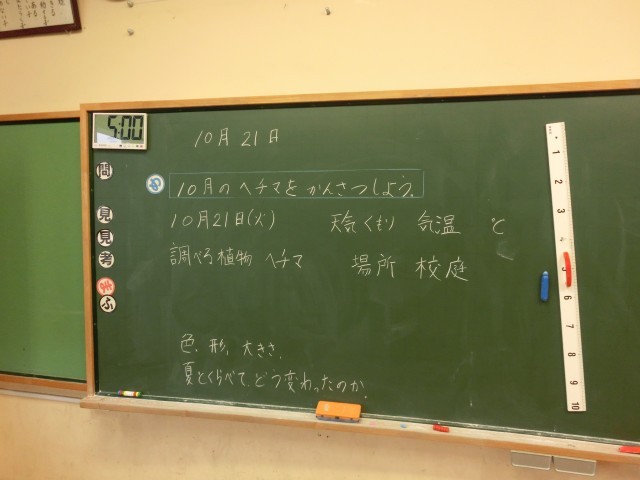 5:00
10月21日
問
め
10月のヘチマをかんさつしよう。
見
10月21日(火) 天気くもり 気温 ℃
見
考
調べる植物 ヘチマ 場所 校庭
ま
ふ
色、形、大きさ、
夏とくらべて、どう変わったのか。
1
2
3
4
5
6
7
8
9
10